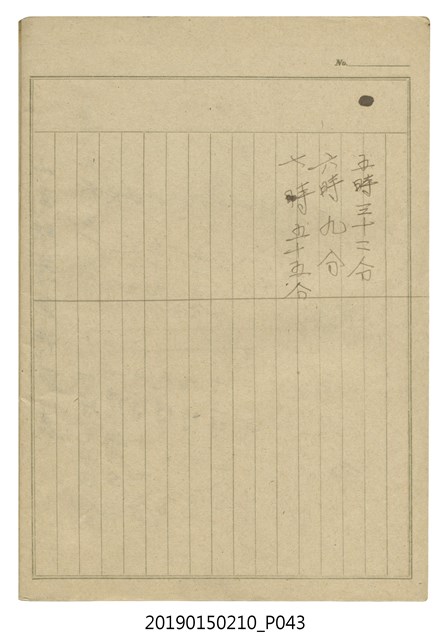 No.
五時三十二分
六時九分
七時五十五分
20190150210_P043